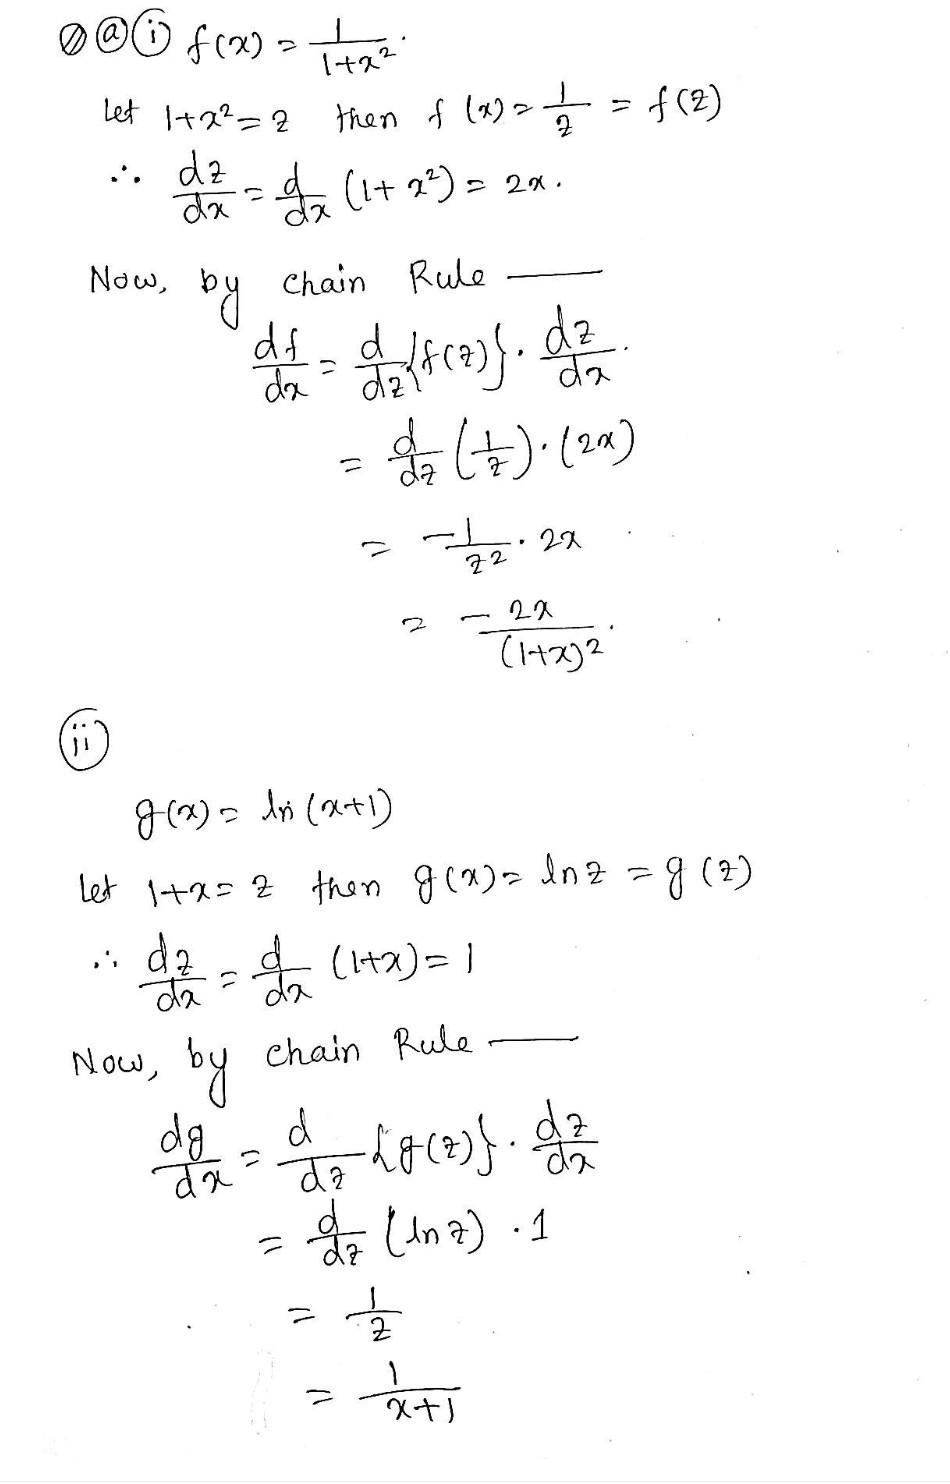 ⓐ ⓘ f(x) = 1/(1+x²).
Let 1+x² = z then f(x) = 1/z = f(z)
∴ dz/dx = d/dx (1+x²) = 2x.
Now, by chain Rule —
df/dx = d/dz {f(z)} · dz/dx.
= d/dz (1/z) · (2x)
= -1/z² · 2x
= -2x/(1+x)².
ⓘⓘ
g(x) = ln (x+1)
Let 1+x = z then g(x) = ln z = g(z)
∴ dz/dx = d/dx (1+x) = 1
Now, by chain Rule —
dg/dx = d/dz {g(z)} · dz/dx
= d/dz (ln z) · 1
= 1/z
= 1/(x+1)